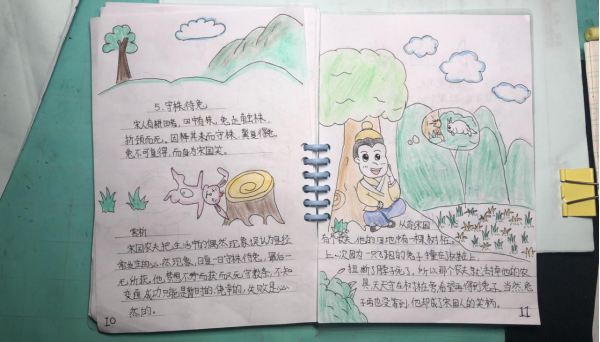 5.守株待兔
宋人有耕田者,田中有株,兔走触株,
折颈而死。因释其耒而守株,冀复得兔,
兔不可复得,而身为宋国笑。
赏析
宋国农夫把生活中的偶然现象误认为是经
常发生的必然现象,日复一日守株待兔,最后一
无所获。他 不劳而获而死守教条,不知
变通,成功只能是暂时的、侥幸的,失败是必
然的。
10
从前宋国
有个农夫,他的田地中有一棵树桩,
上一次因为一只飞跑的兔子撞在树桩上,
扭断了脖子死了。所以那个农夫就 他的农
具,天天守在树桩旁,希望再得到兔子。当然,兔
子再也没等到,他却成了宋国人的笑柄。
11